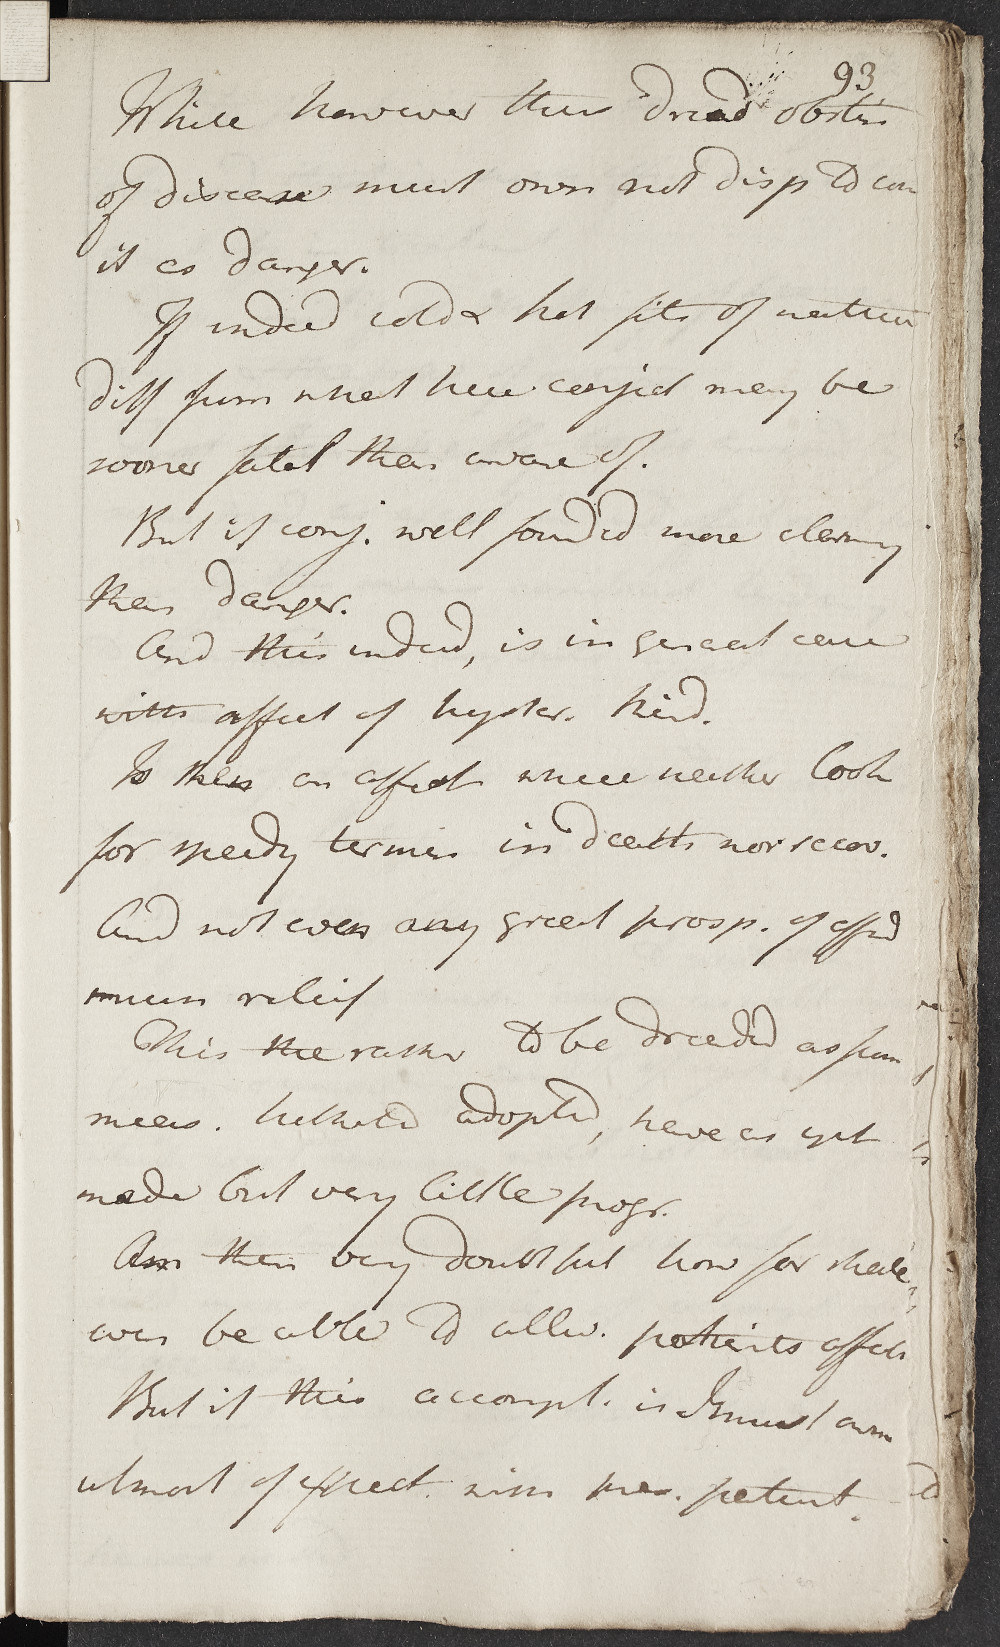 93
While however thus dread obstin
of disease must own not disp to con
it as danger.
If indeed cold & hot fits of nature
diff from what here conject may be
sooner fatal than aware of.
But if conj. well founded more alarmg
than danger.
And this indeed, is in general case
with affect of hyster. kind.
Is then an affect where neither look
for speedy termin in death nor recov.
And not even any great prosp. of affd
mean relief
This the rather to be dreaded as from
meas. hitherto adopted, have as yet
made but very little progr.
Am then very doubtful how far shall
even be able to allev. patients affect
But if this accompl. is I must own
utmost of expect. with pres. patient.